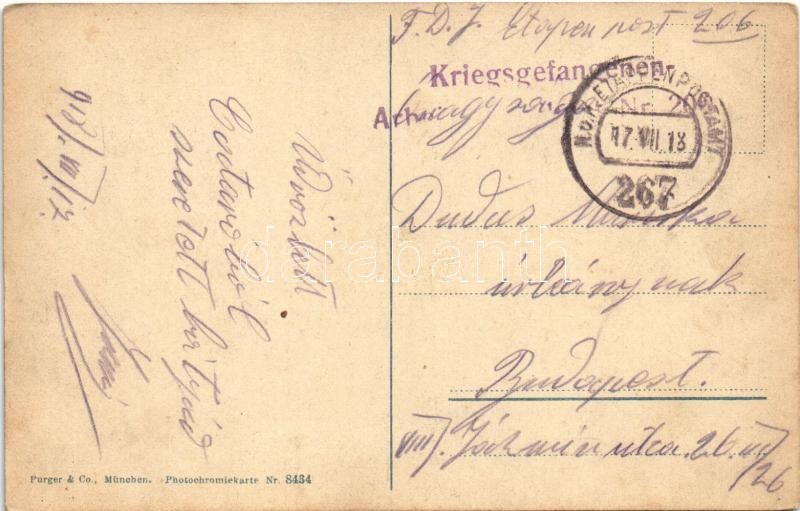 F. D. J. Etapen post 206
Kriegsgefangenen-
Nr.
K.u.K. ETAPPENPOSTAMT
17.VII.18
267
Dudás
úrleánynak
Budapest.
VIII. Jázmin utca 26. III/26
918. VII/17.
Üdvözlett
Cataroból
szeretett bátyád
Purger & Co., München. Photochromiekarte Nr. 8434
darabanth